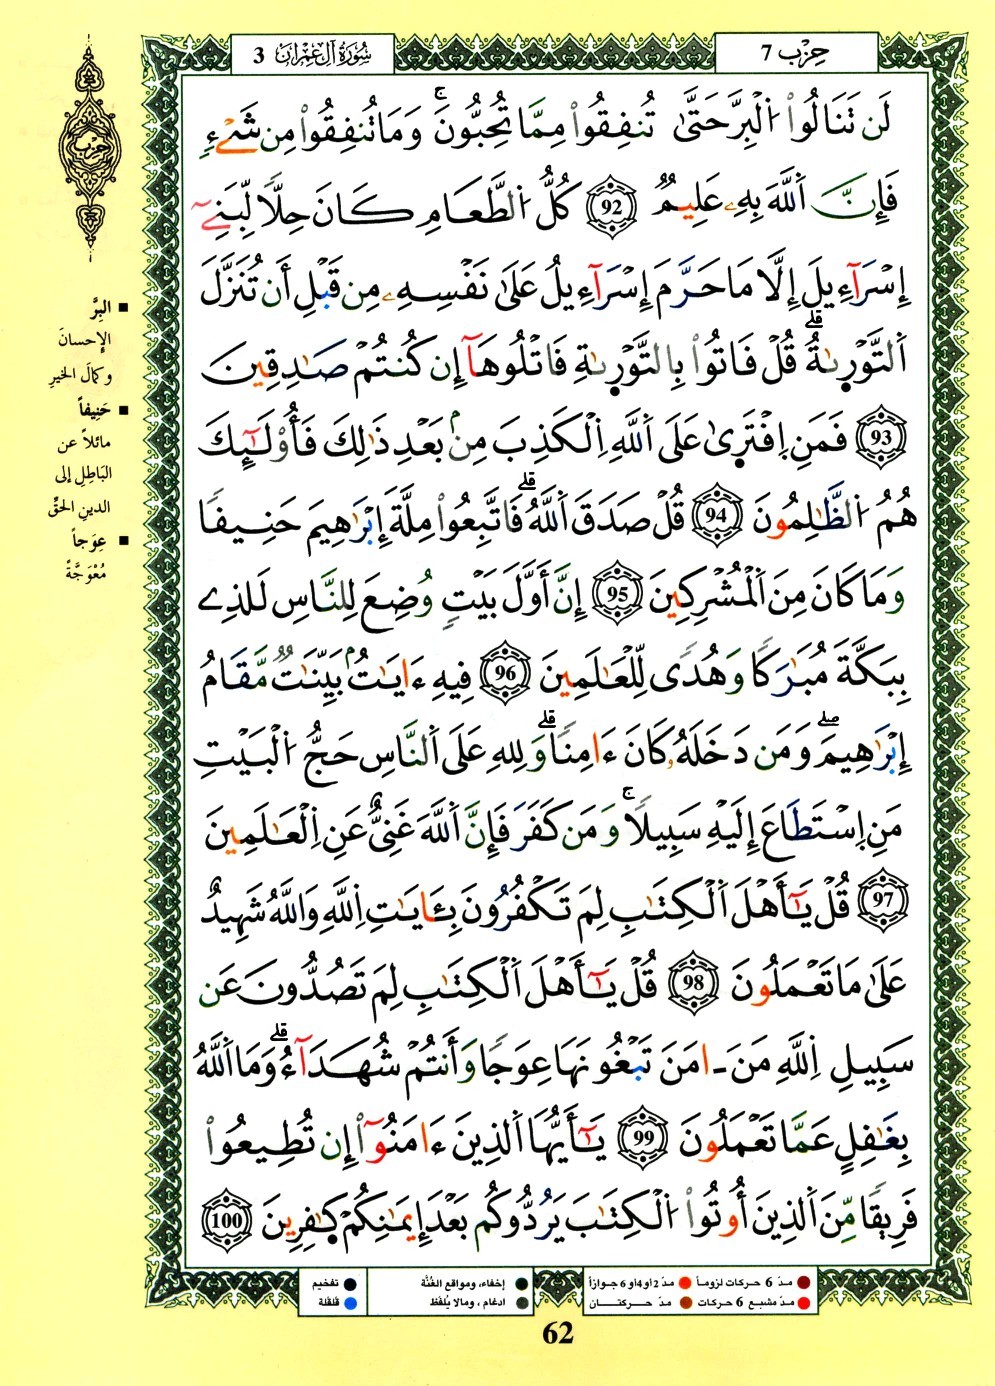 حِزْب 7
سُورَةُ آلِ عِمْرَانَ 3
لَن تَنَالُوا۟ اُ۬لْبِرَّ حَتَّىٰ تُنفِقُوا۟ مِمَّا تُحِبُّونَۚ وَمَا تُنفِقُوا۟ مِن شَےْءٖ
فَإِنَّ اَ۬للَّهَ بِهِۦ عَلِيمٞ 92 كُلُّ اُ۬لطَّعَامِ كَانَ حِلّٗا لِّبَنِےٓ
إِسْرَآءِيلَ إِلَّا مَا حَرَّمَ إِسْرَآءِيلُ عَلَىٰ نَفْسِهِۦ مِن قَبْلِ أَن تُنَزَّلَ
اَ۬لتَّوْرَىٰةُۗ قُلْ فَاتُوا۟ بِالتَّوْرَىٰةِ فَاتْلُوهَآ إِن كُنتُمْ صَٰدِقِينَ
93 فَمَنِ اِ۪فْتَرَىٰ عَلَى اَ۬للَّهِ اِ۬لْكَذِبَ مِنۢ بَعْدِ ذَٰلِكَ فَأُو۟لَٰٓئِكَ
هُمُ اُ۬لظَّٰلِمُونَ 94 قُلْ صَدَقَ اَ۬للَّهُۗ فَاتَّبِعُوا۟ مِلَّةَ إِبْرَٰهِيمَ حَنِيفٗا
وَمَا كَانَ مِنَ اَ۬لْمُشْرِكِينَ 95 إِنَّ أَوَّلَ بَيْتٖ وُضِعَ لِلنَّاسِ لَلذِے
بِبَكَّةَ مُبَٰرَكٗا وَهُدٗى لِّلْعَٰلَمِينَ 96 فِيهِ ءَايَٰتُۢ بَيِّنَٰتٞ مَّقَامُ
إِبْرَٰهِيمَۖ وَمَن دَخَلَهُۥ كَانَ ءَامِنٗاۗ وَلِلهِ عَلَى اَ۬لنَّاسِ حَجُّ اُ۬لْبَيْتِ
مَنِ اِ۪سْتَطَاعَ إِلَيْهِ سَبِيلٗاۚ وَمَن كَفَرَ فَإِنَّ اَ۬للَّهَ غَنِيٌّ عَنِ اِ۬لْعَٰلَمِينَ
97 قُلْ يَٰٓأَهْلَ اَ۬لْكِتَٰبِ لِمَ تَكْفُرُونَ بِـَٔايَٰتِ اِ۬للَّهِ وَاللَّهُ شَهِيدٌ
عَلَىٰ مَا تَعْمَلُونَ 98 قُلْ يَٰٓأَهْلَ اَ۬لْكِتَٰبِ لِمَ تَصُدُّونَ عَن
سَبِيلِ اِ۬للَّهِ مَنَ ـ اٰمَنَ تَبْغُونَهَا عِوَجٗا وَأَنتُمْ شُهَدَآءُۗ وَمَا اَ۬للَّهُ
بِغَٰفِلٍ عَمَّا تَعْمَلُونَ 99 يَٰٓأَيُّهَا اَ۬لذِينَ ءَامَنُوٓا۟ إِن تُطِيعُوا۟
فَرِيقٗا مِّنَ اَ۬لذِينَ أُوتُوا۟ اُ۬لْكِتَٰبَ يَرُدُّوكُم بَعْدَ إِيمَٰنِكُمْ كَٰفِرِينَ 100
حِزْب
■ البِرَّ
الإحسانَ
وكمالَ الخيرِ
■ حَنِيفاً
مائلاً عن
البَاطِلِ إلى
الدينِ الحقِّ
■ عِوَجاً
مُعْوَجَّةً
مدّ 6 حركات لزوماً مدّ 2 أو 4 أو 6 جوازاً
مدّ مشبع 6 حركات مدّ حركتان
إخفاء، ومواقع الغُنَّة
ادغام، ومالا يُلفَظ
تفخيم
قلقلة
62